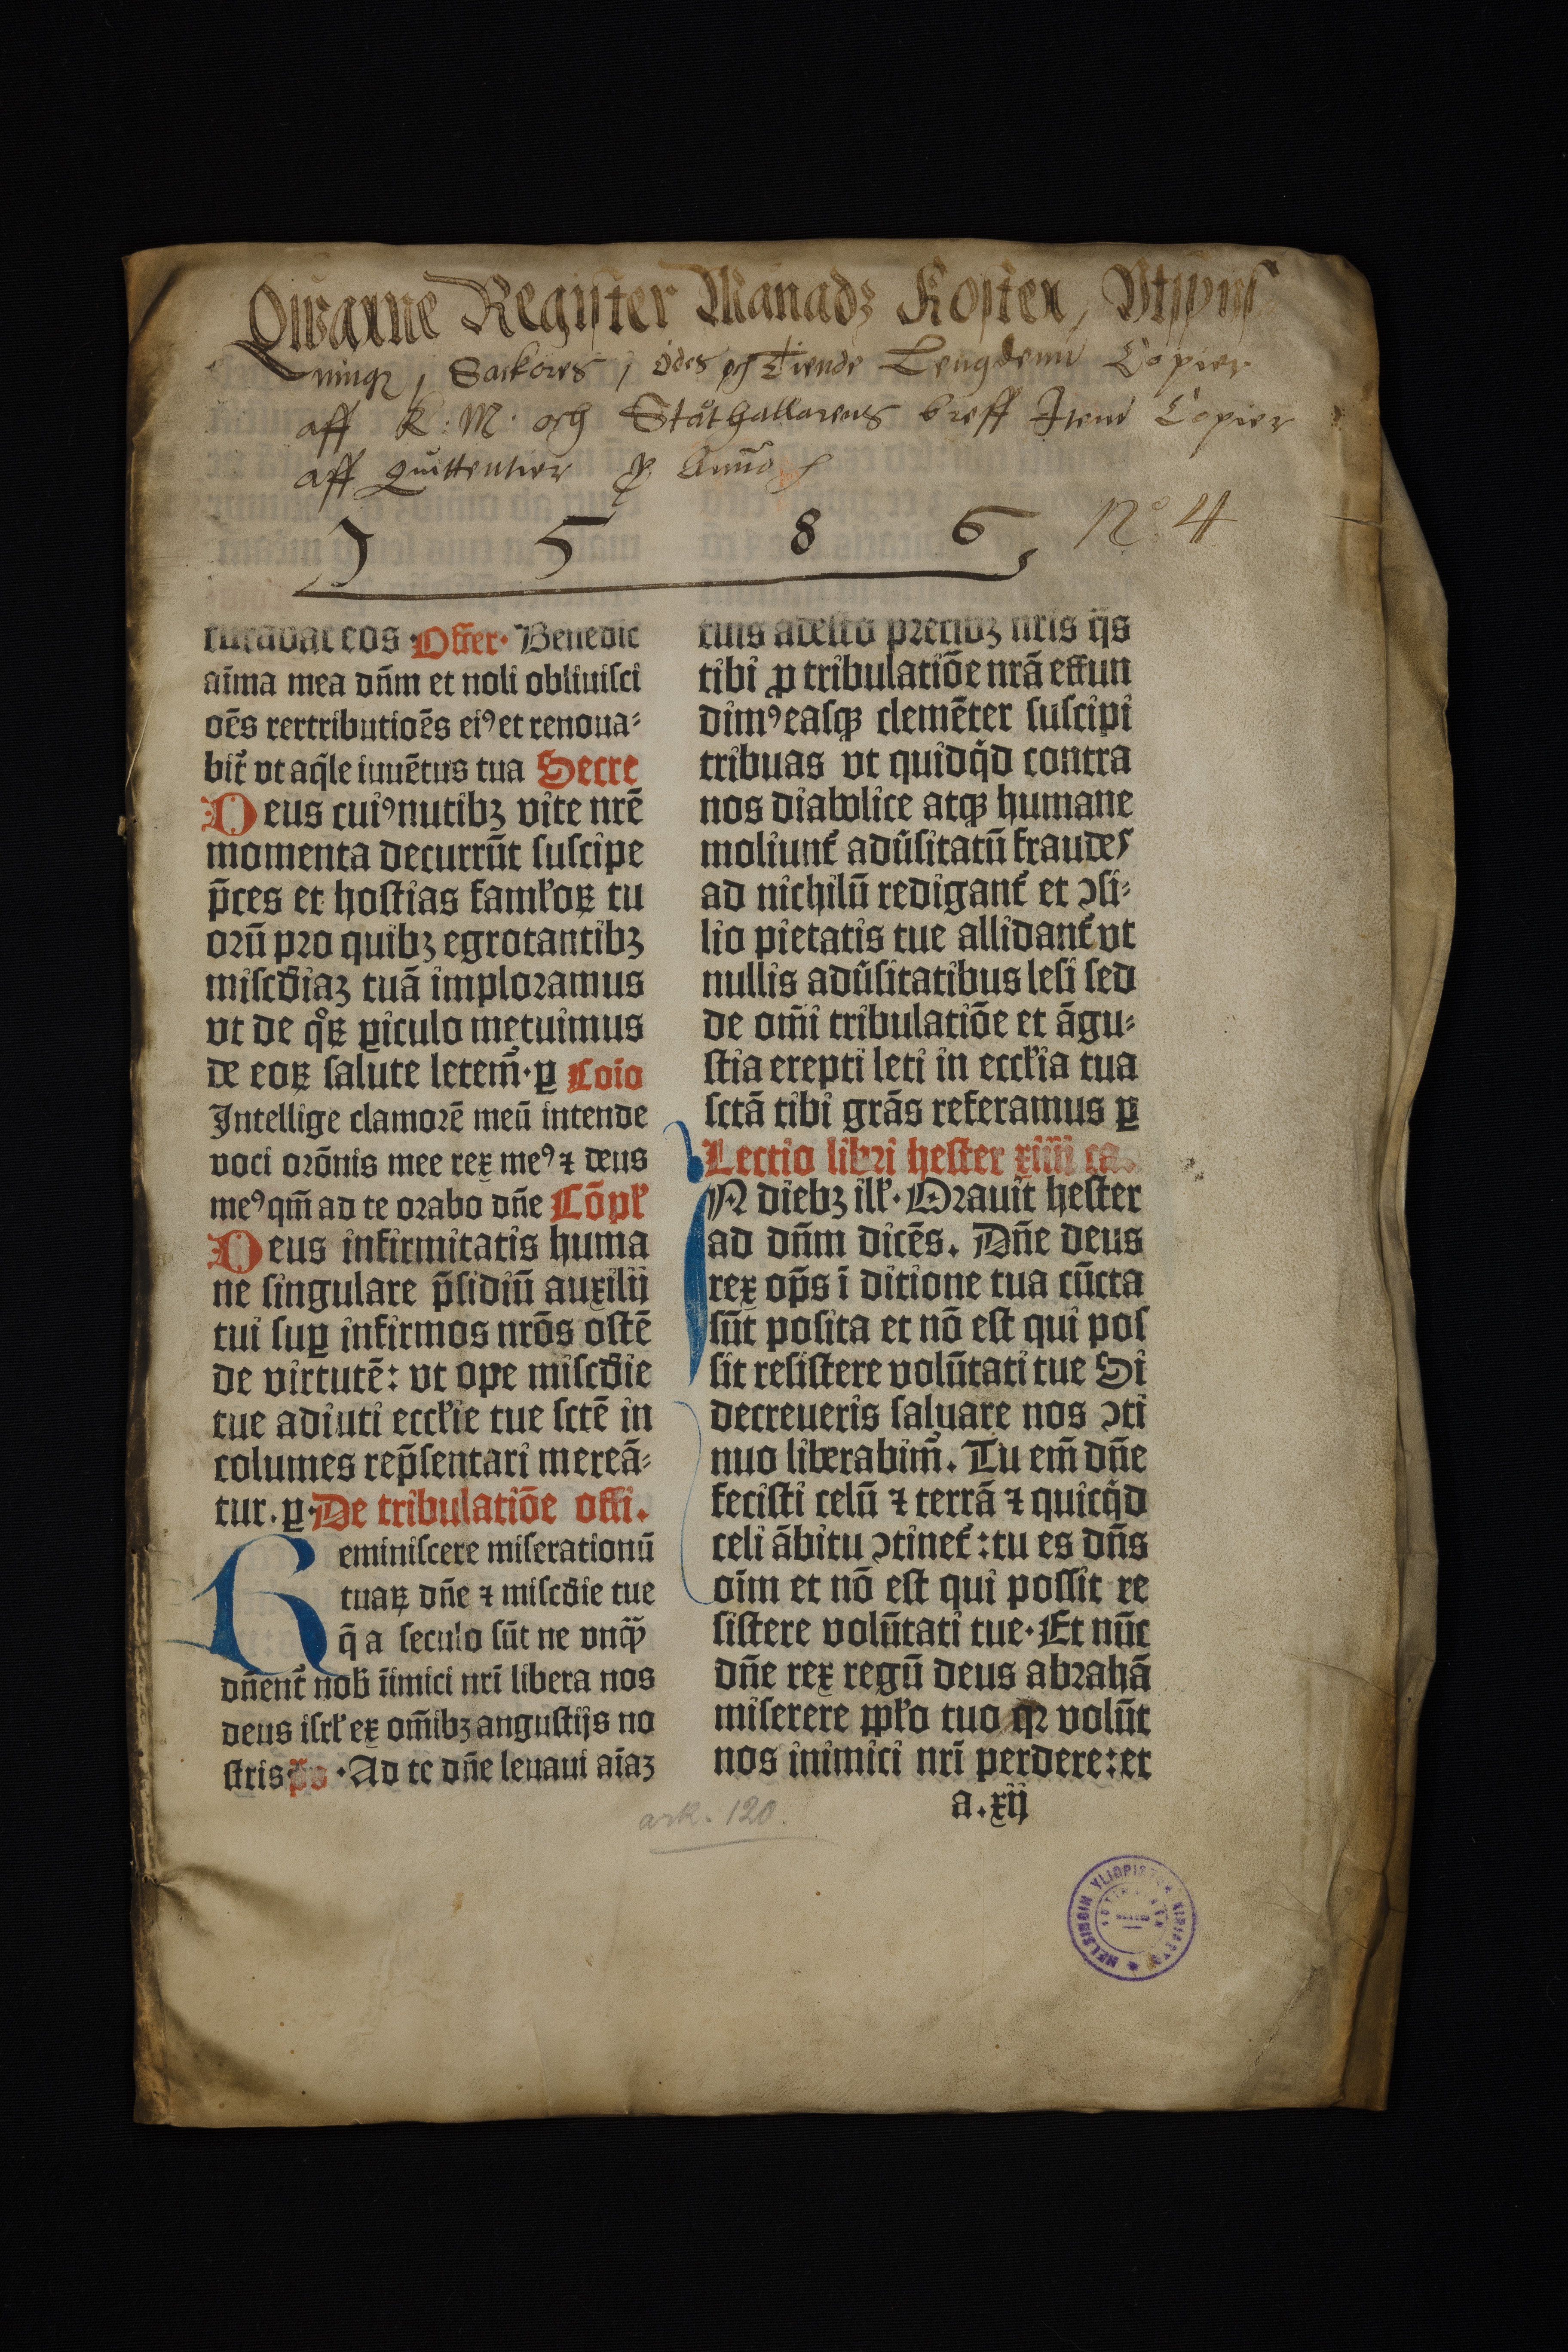 Qwarne Register Månadz Koster, Vtspis
ningz, Sackores, ödes och Tiende Lengdenn Copier
aff K: M: och Ståthallarens breff Item Copier
aff Quittentier Anno
1 5 8 6 No 4
curabat eos ·Offer· Benedic
aīma mea dn̄m et noli obliuiſci
oēs rertributioēs eiꝰ et renoua⸗
bit᷑ vt aq̄le iuuētus tua Secre
Deus cuiꝰ nutibꝫ vite nrē
momenta decurrūt ſuſcipe
p̄ces et hoſtias famƚoꝝ tu
orū pro quibꝫ egrotantibꝫ
miſcd̄iaꝫ tuā imploramus
vt de qͦꝝ ꝑiculo metuimus
de eoꝝ ſalute letem̄·ꝑ Coīo
Intellige clamorē meū intende
voci orōnis mee rex meꝰ ⁊ deus
meꝰ qm̄ ad te orabo dn̄e Cōpƚ
Deus infirmitatis huma
ne ſingulare p̄ſidiū auxilij
tui ſuꝑ infirmos nrōs oſtē
de virtutē: vt ope miſcd̄ie
tue adiuti eccƚie tue ſctē in
columes rep̄ſentari mereā⸗
tur.ꝑ·De tribulatiōe offi.
Reminiſcere miſerationū
tuaꝝ dn̄e ⁊ miſcd̄ie tue
q̄ a ſeculo ſūt ne vnqꝫ̄
dn̄ent᷑ nob̄ īimici nrī libera nos
deus iſrƚ ex om̄ibꝫ anguſtijs no
ſtris p̄s ·Ad te dn̄e leuaui aīaꝫ
tuis adeſto precibꝫ nrīs q̄s
tibi ꝓ tribulatiōe nrā effun
dimꝰ eaſqꝫ clemēter ſuſcipi
tribuas vt quidq̄d contra
nos diabolice atqꝫ humane
moliunt᷑ adūſitatū fraudes
ad nichilū redigant᷑ et ↄſi⸗
lio pietatis tue allidant᷑ vt
nullis adūſitatibus leſi ſed
de om̄i tribulatiōe et āgu⸗
ſtia erepti leti in eccƚia tua
ſctā tibi grās referamus ꝑ
Lectio libri heſter xiiii ca.
IN diebꝫ ilƚ· Orauit heſter
ad dn̄m dicēs. Dn̄e deus
rex op̄s ī ditione tua cūcta
ſūt poſita et nō eſt qui poſ
ſit reſiſtere volūtati tue Si
decreueris ſaluare nos ↄti
nuo liberabim̄. Tu em̄ dn̄e
feciſti celū ⁊ terrā ⁊ quicq̄d
celi ābitu ↄtinet᷑: tu es dn̄s
oīm et nō eſt qui poſſit re
ſiſtere volūtati tue· Et nūc
dn̄e rex regū deus abrahā
miſerere ppƚo tuo qꝛ volūt
nos inimici nrī perdere: et
a.xij
ark. 120.
HELSINGIN YLIOPISTON KIRJASTO